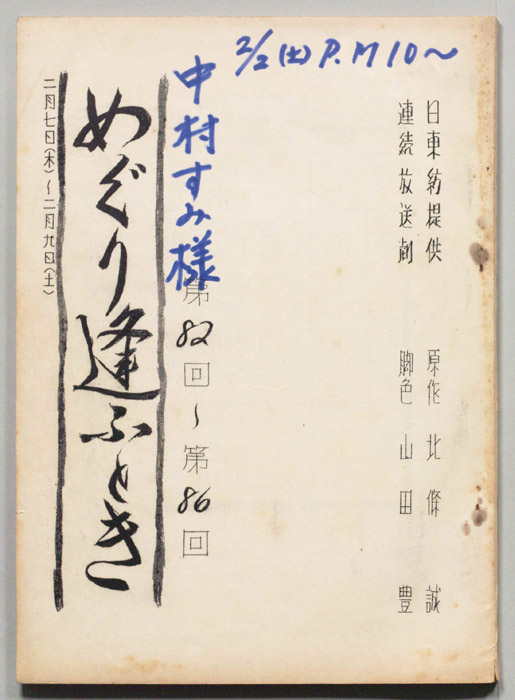 2/2(土)P.M10〜
日東紡提供 原作 北條 誠
連続放送劇 脚色 山田 豊
中村すみ様
第82回〜第86回
めぐり逢ふとき
二月七日(木)〜二月九日(土)